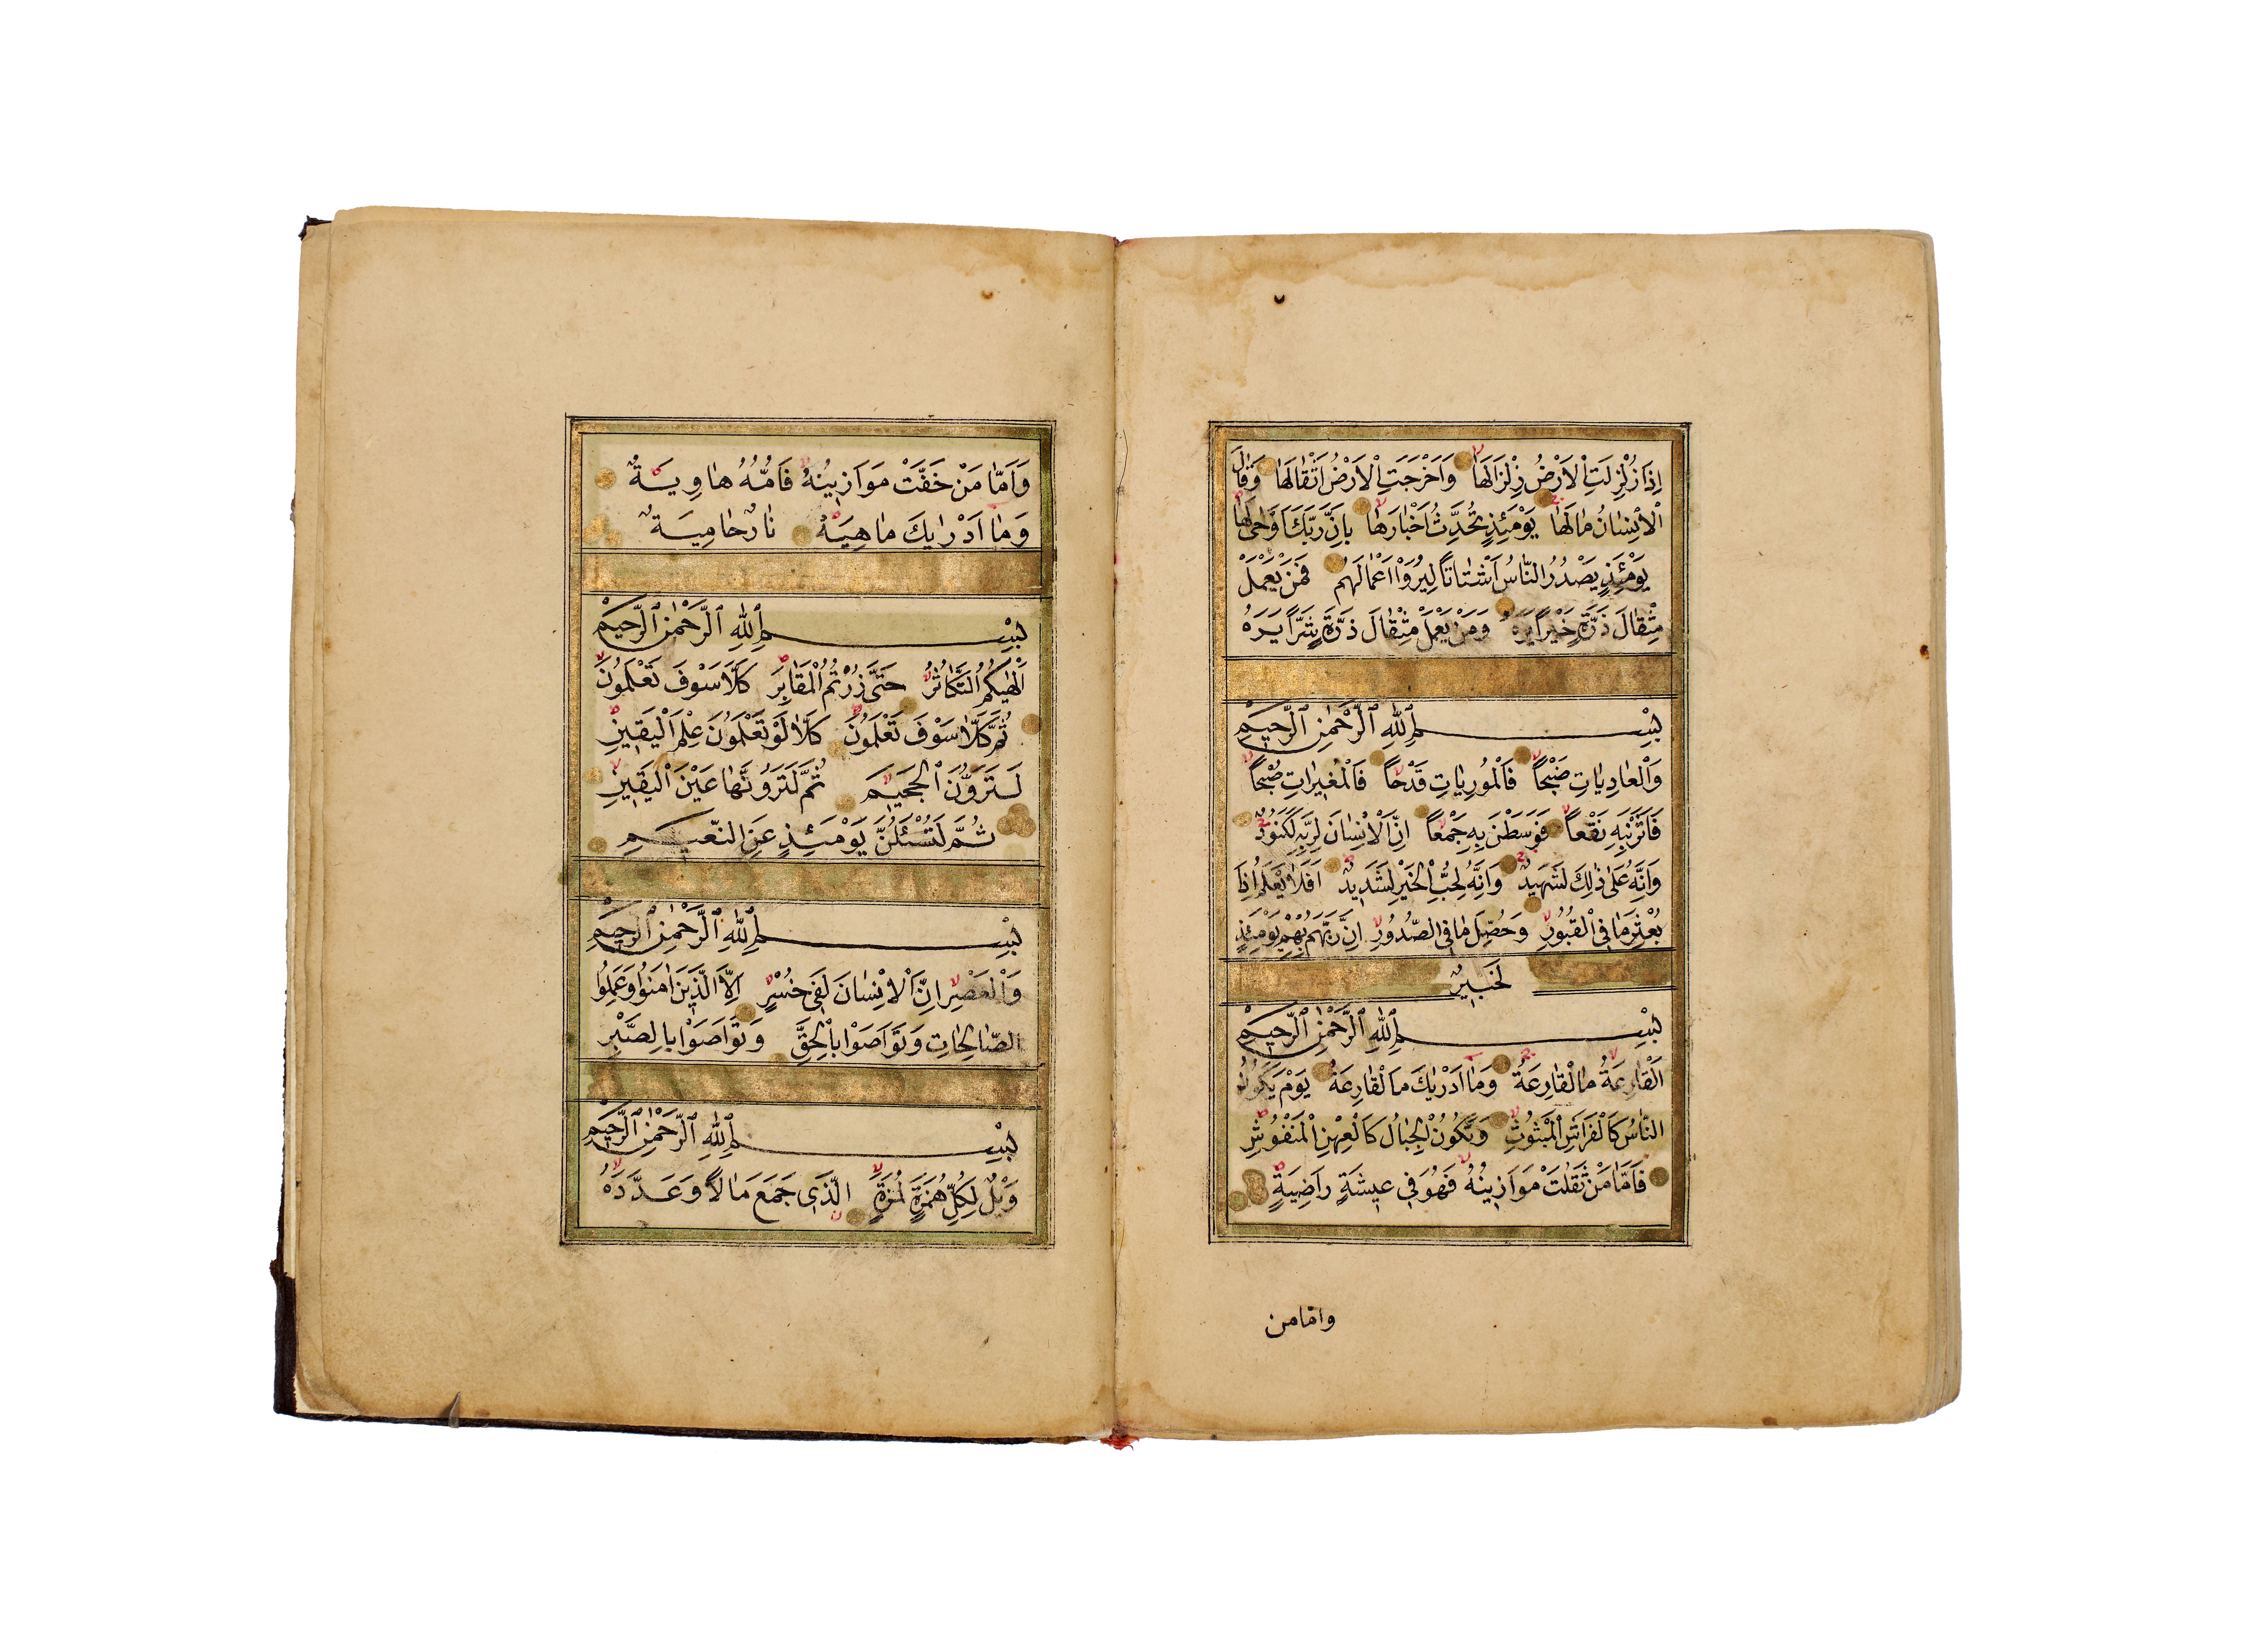 اِذَا زُلْزِلَتِ الْاَرْضُ زِلْزَالَهَا وَاَخْرَجَتِ الْاَرْضُ اَثْقَالَهَا وَقَالَ
الْاِنْسَانُ مَا لَهَا يَوْمَئِذٍ تُحَدِّثُ اَخْبَارَهَا بِاَنَّ رَبَّكَ اَوْحٰى لَهَا
يَوْمَئِذٍ يَصْدُرُ النَّاسُ اَشْتَاتًا لِيُرَوْا اَعْمَالَهُمْ فَمَنْ يَعْمَلْ
مِثْقَالَ ذَرَّةٍ خَيْرًا يَرَهُ وَمَنْ يَعْمَلْ مِثْقَالَ ذَرَّةٍ شَرًّا يَرَهُ
بِسْمِ اللّٰهِ الرَّحْمٰنِ الرَّحِيمِ
وَالْعَادِيَاتِ ضَبْحًا فَالْمُورِيَاتِ قَدْحًا فَالْمُغِيرَاتِ صُبْحًا
فَاَثَرْنَ بِهِ نَقْعًا فَوَسَطْنَ بِهِ جَمْعًا اِنَّ الْاِنْسَانَ لِرَبِّهِ لَكَنُودٌ
وَاِنَّهُ عَلٰى ذٰلِكَ لَشَهِيدٌ وَاِنَّهُ لِحُبِّ الْخَيْرِ لَشَدِيدٌ اَفَلَا يَعْلَمُ اِذَا
بُعْثِرَ مَا فِي الْقُبُورِ وَحُصِّلَ مَا فِي الصُّدُورِ اِنَّ رَبَّهُمْ بِهِمْ يَوْمَئِذٍ
لَخَبِيرٌ
بِسْمِ اللّٰهِ الرَّحْمٰنِ الرَّحِيمِ
اَلْقَارِعَةُ مَا الْقَارِعَةُ وَمَا اَدْرٰيكَ مَا الْقَارِعَةُ يَوْمَ يَكُونُ
النَّاسُ كَالْفَرَاشِ الْمَبْثُوثِ وَتَكُونُ الْجِبَالُ كَالْعِهْنِ الْمَنْفُوشِ
فَاَمَّا مَنْ ثَقُلَتْ مَوَازِينُهُ فَهُوَ فِي عِيشَةٍ رَاضِيَةٍ
واما من
وَاَمَّا مَنْ خَفَّتْ مَوَازِينُهُ فَاُمُّهُ هَاوِيَةٌ
وَمَا اَدْرٰيكَ مَا هِيَهْ نَارٌ حَامِيَةٌ
بِسْمِ اللّٰهِ الرَّحْمٰنِ الرَّحِيمِ
اَلْهٰيكُمُ التَّكَاثُرُ حَتّٰى زُرْتُمُ الْمَقَابِرَ كَلَّا سَوْفَ تَعْلَمُونَ
ثُمَّ كَلَّا سَوْفَ تَعْلَمُونَ كَلَّا لَوْ تَعْلَمُونَ عِلْمَ الْيَقِينِ
لَتَرَوُنَّ الْجَحِيمَ ثُمَّ لَتَرَوُنَّهَا عَيْنَ الْيَقِينِ
ثُمَّ لَتُسْئَلُنَّ يَوْمَئِذٍ عَنِ النَّعِيمِ
بِسْمِ اللّٰهِ الرَّحْمٰنِ الرَّحِيمِ
وَالْعَصْرِ اِنَّ الْاِنْسَانَ لَفِي خُسْرٍ اِلَّا الَّذِينَ اٰمَنُوا وَعَمِلُوا
الصَّالِحَاتِ وَتَوَاصَوْا بِالْحَقِّ وَتَوَاصَوْا بِالصَّبْرِ
بِسْمِ اللّٰهِ الرَّحْمٰنِ الرَّحِيمِ
وَيْلٌ لِكُلِّ هُمَزَةٍ لُمَزَةٍ الَّذِي جَمَعَ مَالًا وَعَدَّدَهُ